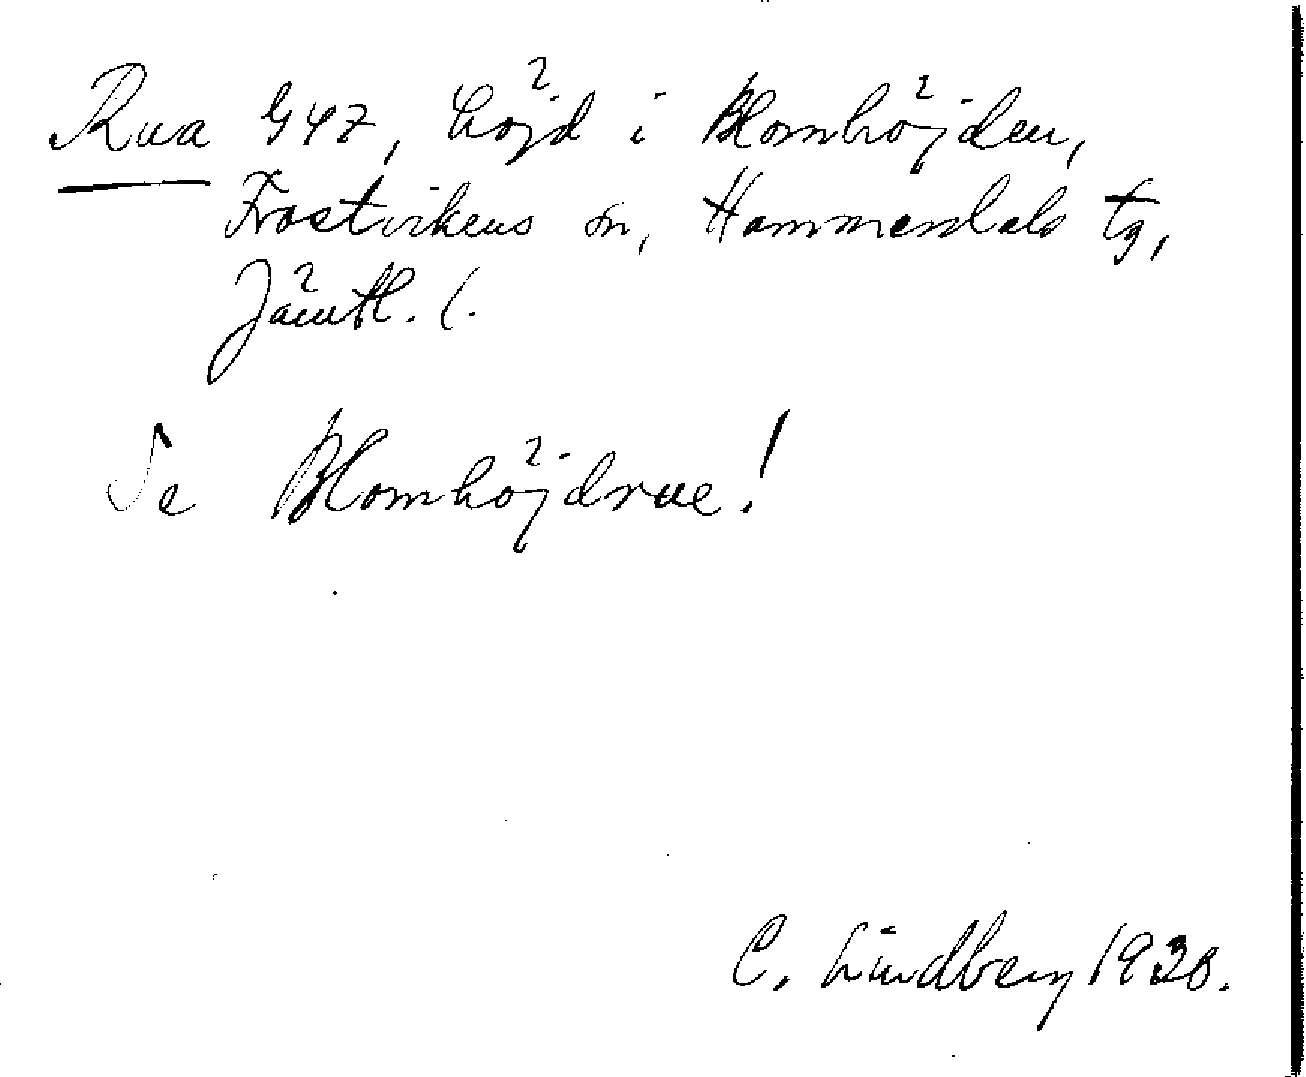 Rua 947, höjd i Blomhöjden,
Frostvikens sn, Hammerdals tg,
Jämtl. l.
Se Blomhöjdrue!
C. Lindberg 1930.